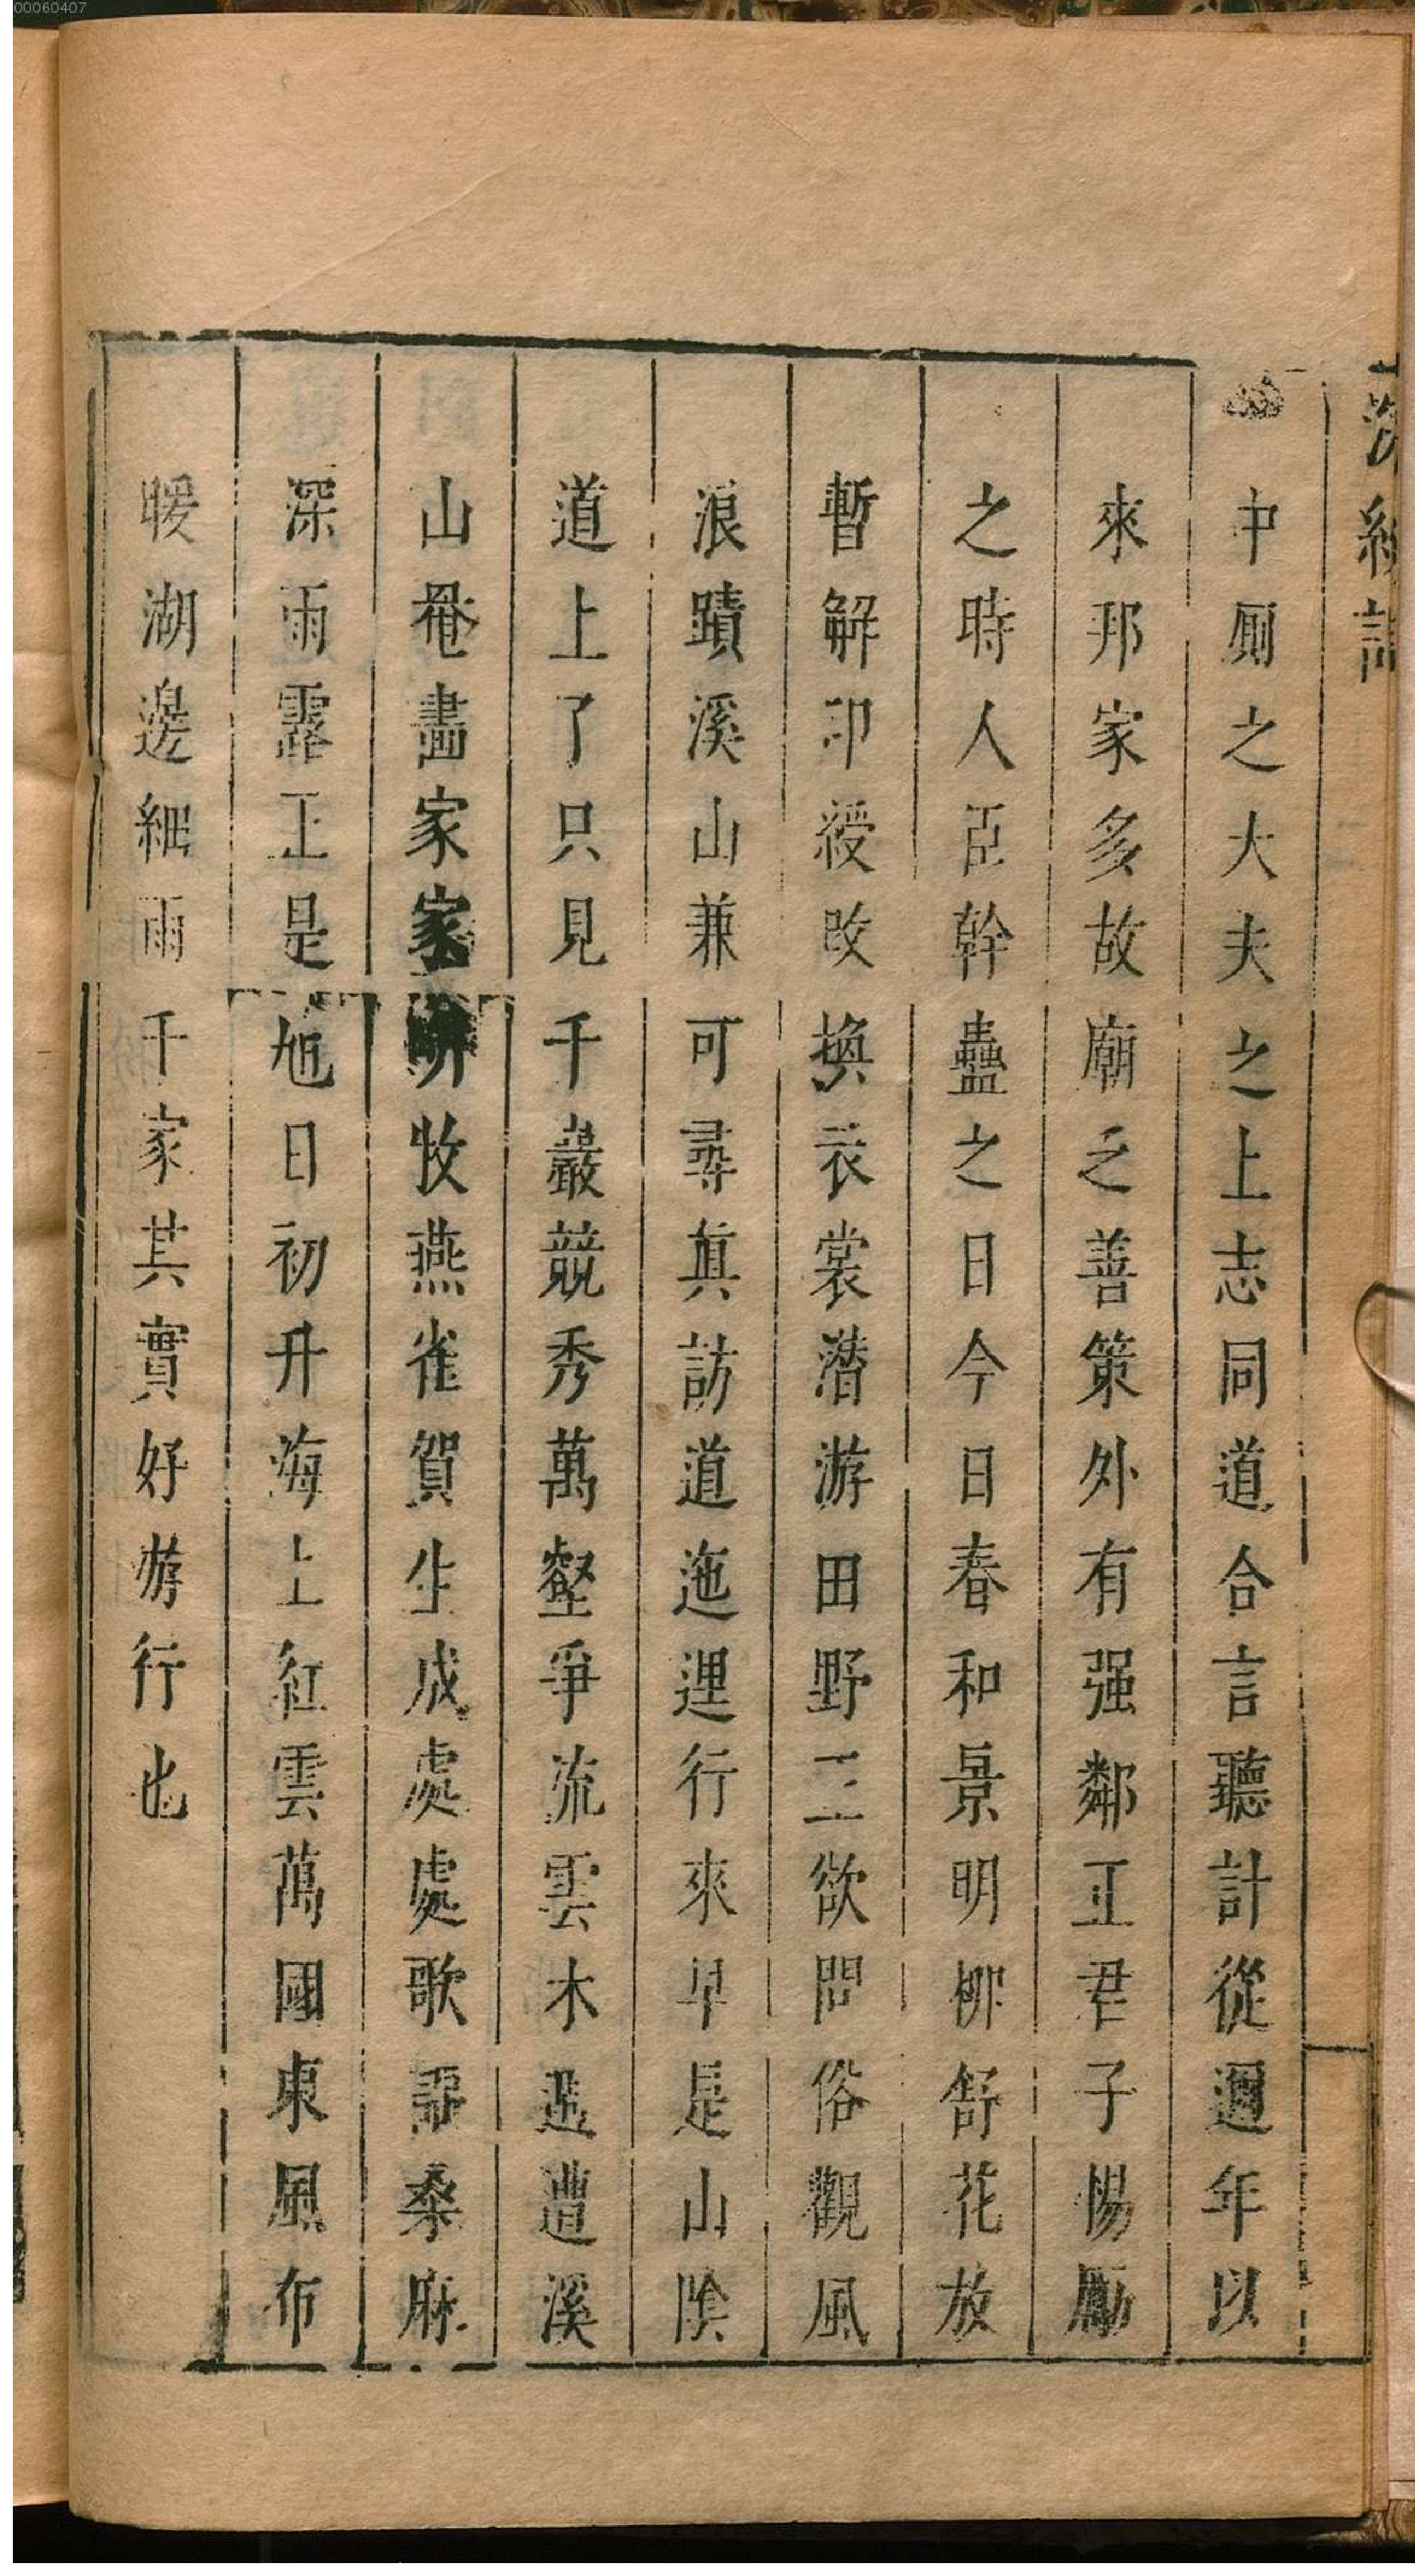 浣紗記
中厠之大夫之上志同道合言聽計從邇年以
來邦家多故廟乏善策外有强鄰正君子惕勵
之時人臣幹蠱之日今日春和景明柳舒花放
暫解印綬改換衣裳潛游田野一二欲問俗觀風
浪蹟溪山兼可尋眞訪道迤逦行來早是山陰
道上了只見千巖競秀萬壑爭流雲木週遭溪
山罨畫家家畊牧燕雀賀生成處處歌謡桑麻
深雨露正是旭日初升海上紅雲萬國東風布
暖湖邊細雨千家其實好游行也
00060407